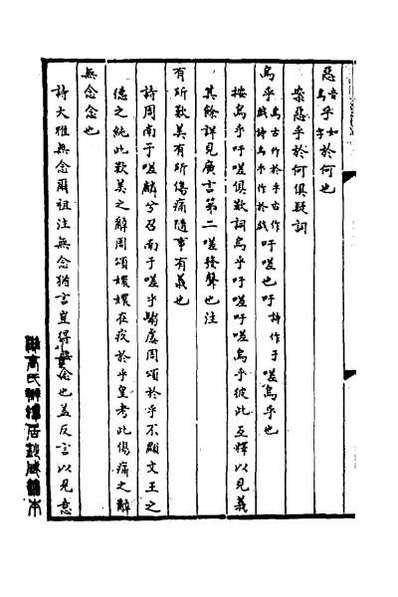 惡音乎如於何也
烏字
案惡乎於何俱疑詞
烏乎古作於乎古作吁嗟也吁詩作于嗟烏乎也
戲詩烏乎作於戲
按烏乎吁嗟俱歎詞烏乎吁嗟吁嗟烏乎彼此互釋以見義
其餘詳見廣言第二嗟發聲也注
有所歎美有所傷痛隨事有義也
詩周南于嗟麟兮召南于嗟乎騶虞周頌於乎不顯文王之
德之純此歎美之辭周頌嬛嬛在疚於乎皇考此傷痛之辭
無念念也
詩大雅無念爾祖注無念猶言豈得無念也蓋反言以見意
高氏辨蟫居
本